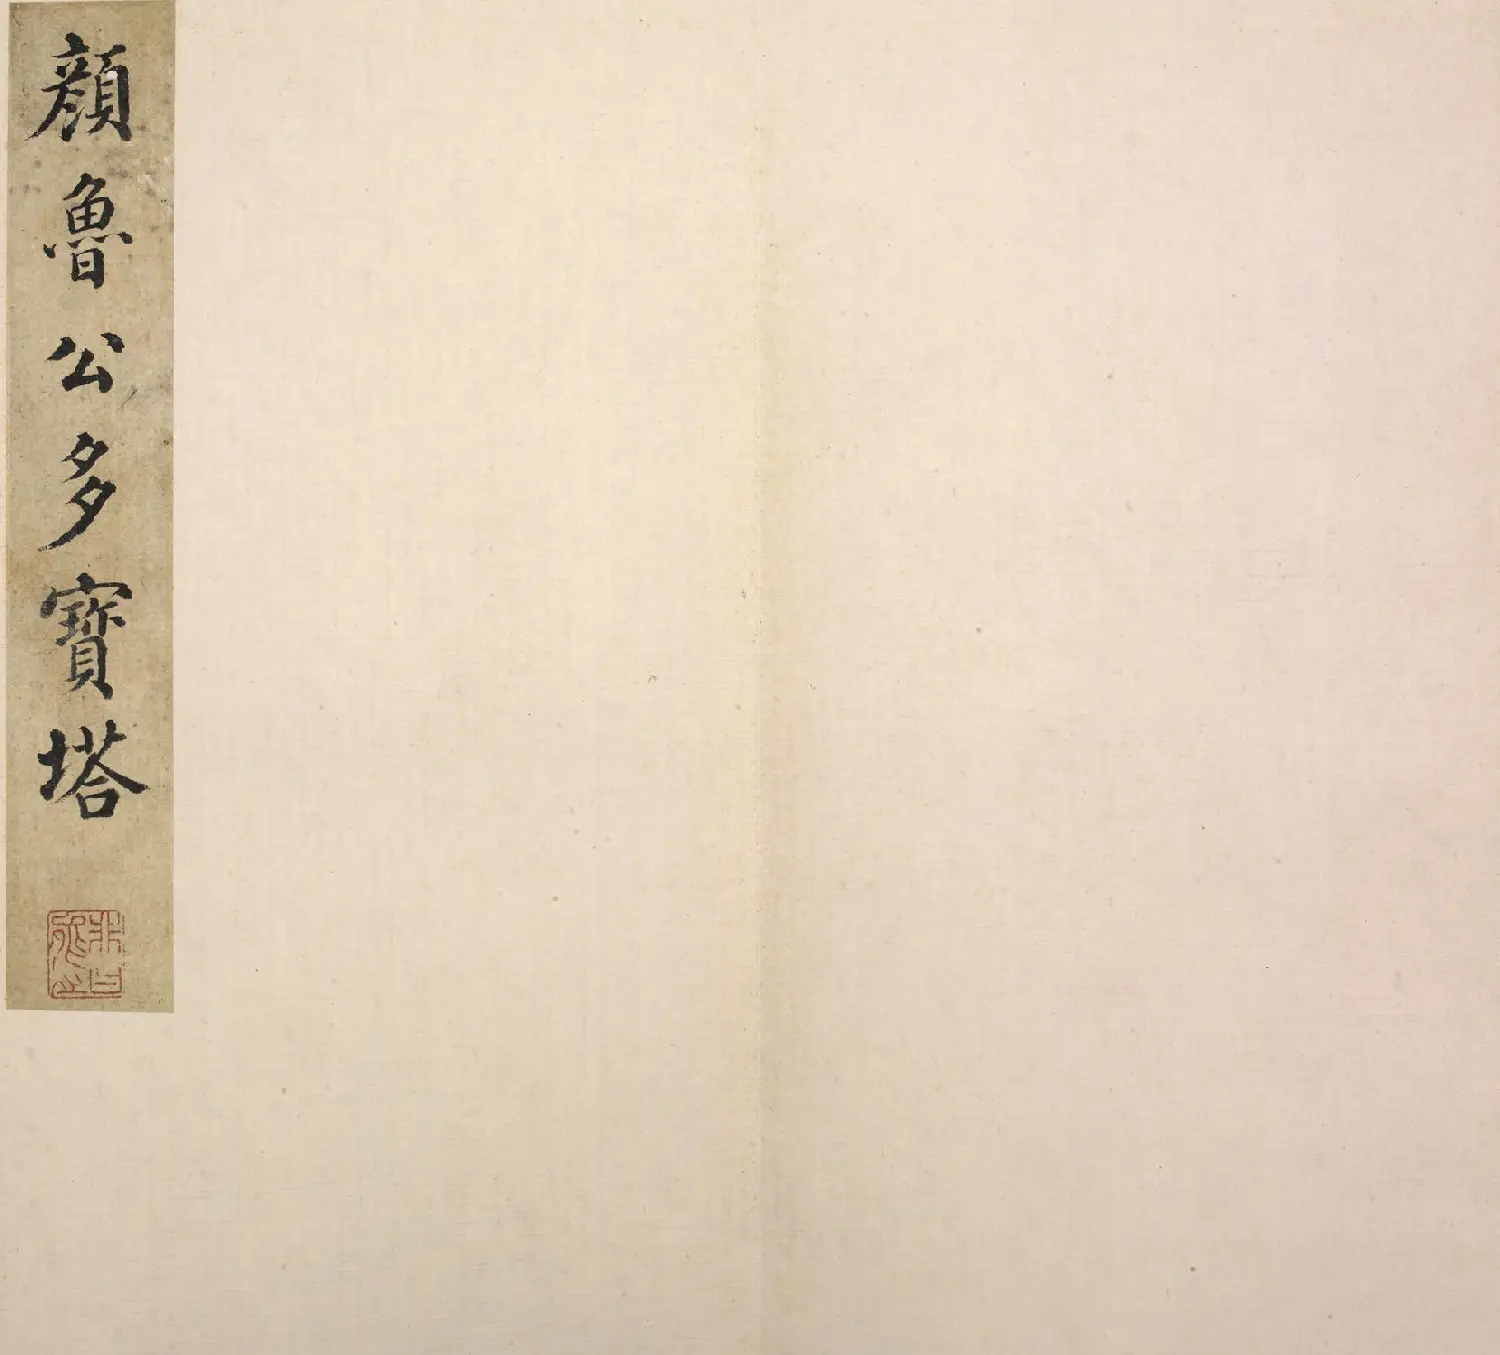 顔魯公多寶塔